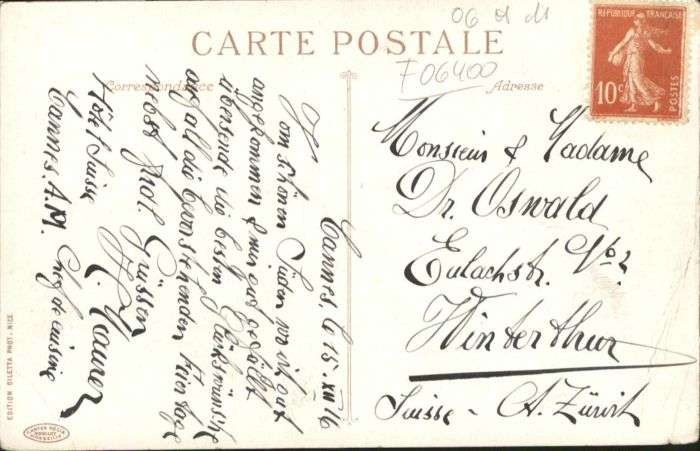 06 M
F06400
CARTE POSTALE
Correspondance
Adresse
RÉPUBLIQUE FRANÇAISE
10c
POSTES
Cannes, le 15 XII 16
Vom schönen Süden wo ich gut
angekommen & mir gefällt
übersende die besten Glückwünsche
auf all die bevorstehenden Feiertage
nebst frdl. Grüssen
Maurer
Hôtel Suisse
Cannes. A. M. Chef de cuisine
Monsieur & Madame
Dr. Oswald
Eulachstr. No. 2
Winterthur
Suisse - Ct. Zürich
EDITION GILETTA PHOT. NICE